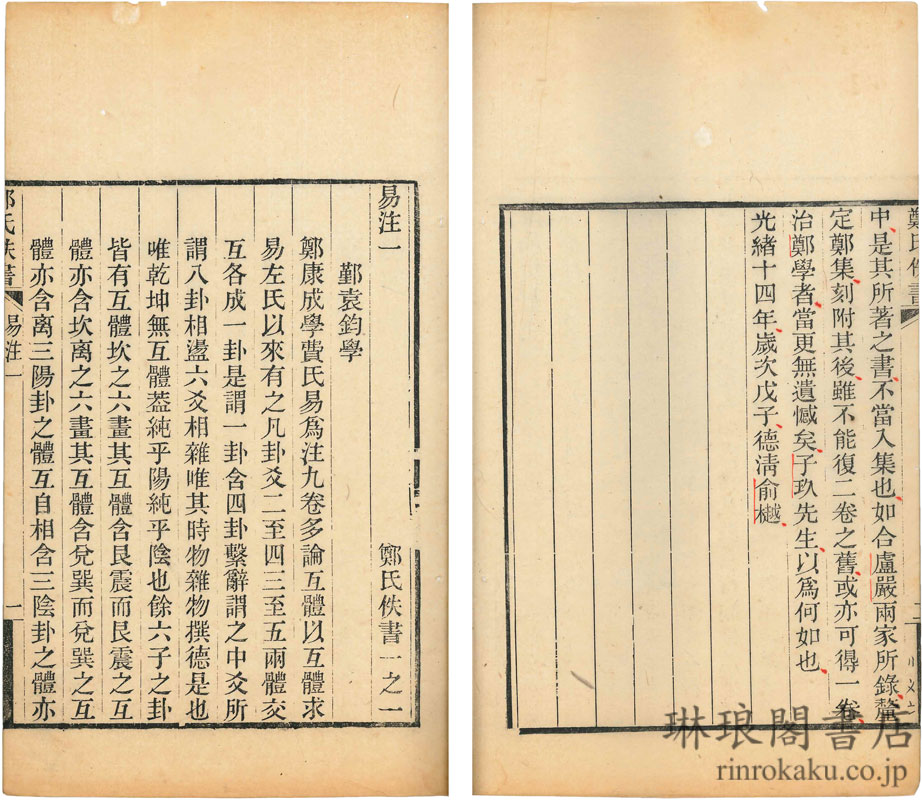 鄭氏佚書
中是其所著之書不當入集也如合盧嚴兩家所錄釐
定鄭集刻附其後雖不能復二卷之舊或亦可得一卷
治鄭學者當更無遺憾矣子玖先生以爲何如也
光緒十四年歲次戊子德清俞樾
易注一 鄭氏佚書一之一
鄞袁鈞學
鄭康成學費氏易爲注九卷多論互體以互體求
易左氏以來有之凡卦爻二至四三至五兩體交
互各成一卦是謂一卦含四卦繫辭謂之中爻所
謂八卦相盪六爻相雜唯其時物雜物撰德是也
唯乾坤無互體葢純乎陽純乎陰也餘六子之卦
皆有互體坎之六畫其互體含艮震而艮震之互
體亦含坎離之六畫其互體含兌巽而兌巽之互
體亦含離三陽卦之體互自相含三陰卦之體亦
鄭氏佚書 易注一 一
琳琅閣書店
rinrokaku.co.jp